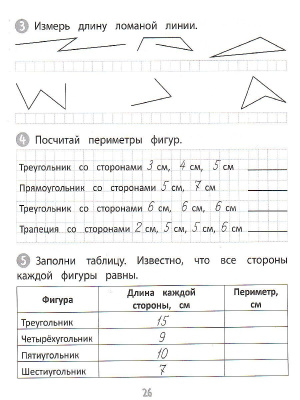 3 Измерь длину ломаной линии.
4 Посчитай периметры фигур.
Треугольник со сторонами 3 см, 4 см, 5 см
Прямоугольник со сторонами 5 см, 7 см
Треугольник со сторонами 6 см, 6 см, 6 см
Трапеция со сторонами 2 см, 5 см, 5 см, 6 см
5 Заполни таблицу. Известно, что все стороны
каждой фигуры равны.
Фигура Длина каждой стороны, см Периметр, см
Треугольник 15
Четырёхугольник 9
Пятиугольник 10
Шестиугольник 7
26